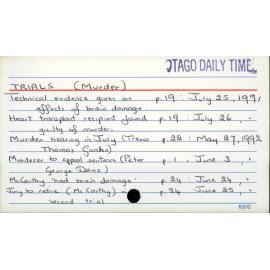 OTAGO DAILY TIME
TRIALS (Murder)
Technical evidence given on p.19 : July 25, 1991
effects of brain damage.
Heart transplant recipient found p.19 : July 26, "
guilty of murder.
Murder hearing in July (Trevor p.22 : May 27, 1992
Thomas Gordon)
Murderer to appeal sentence (Peter p.1 : June 3, "
George Davis)
McCarthy had brain damage - p.24 : June 24, "
Jury to retire (McCarthy) - p.24 June 25, "
record trial
53/C